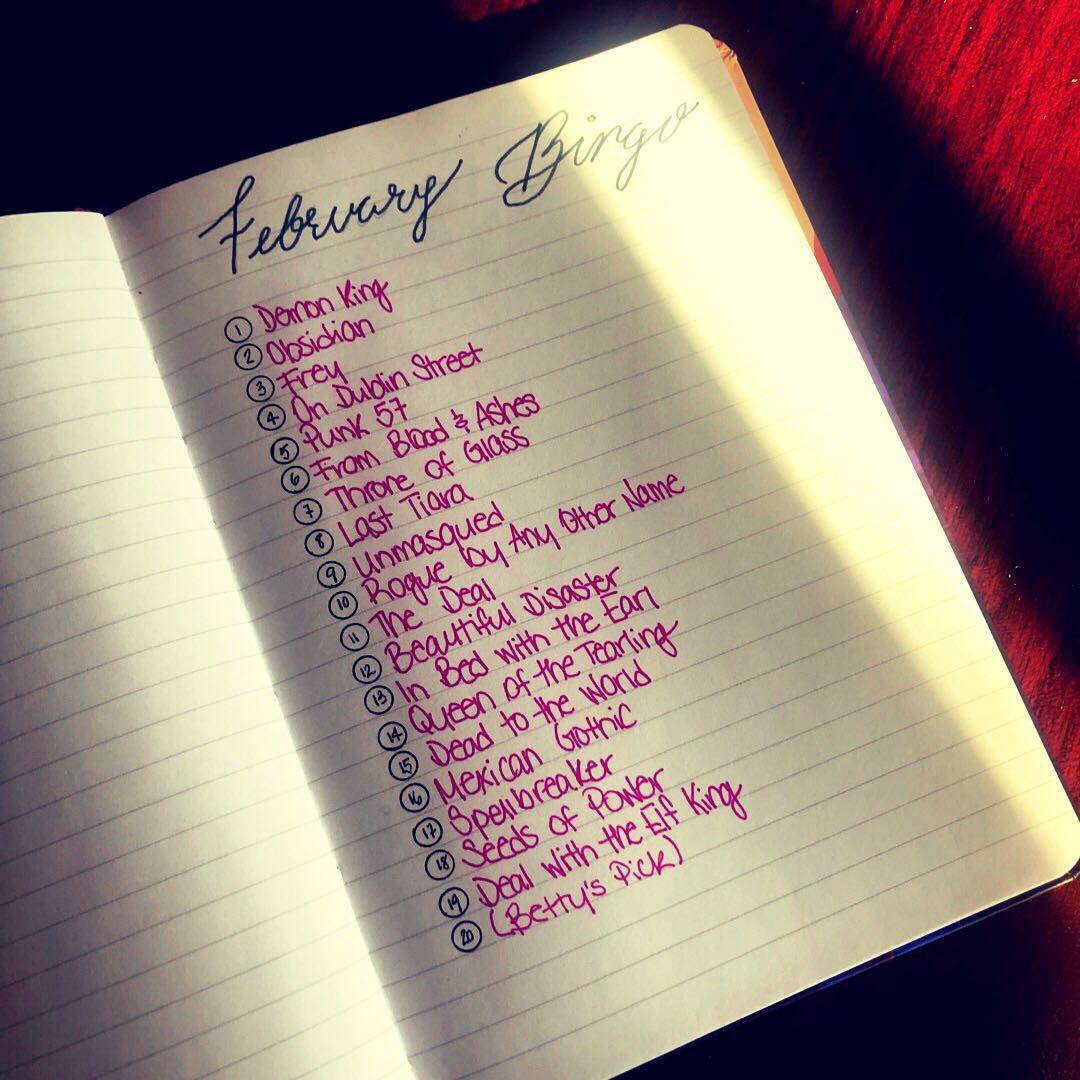 February Bingo
1 Demon King
2 Obsidian
3 Frey
4 On Dublin Street
5 Punk 57
6 From Blood & Ashes
7 Throne of Glass
8 Last Tiara
9 Unmasqued
10 Rogue by Any Other Name
11 The Deal
12 Beautiful Disaster
13 In Bed with the Earl
14 Queen of the Tearling
15 Dead to the World
16 Mexican Gothic
17 Spellbreaker
18 Seeds of Power
19 Deal with the Elf King
20 (Betty's Pick)